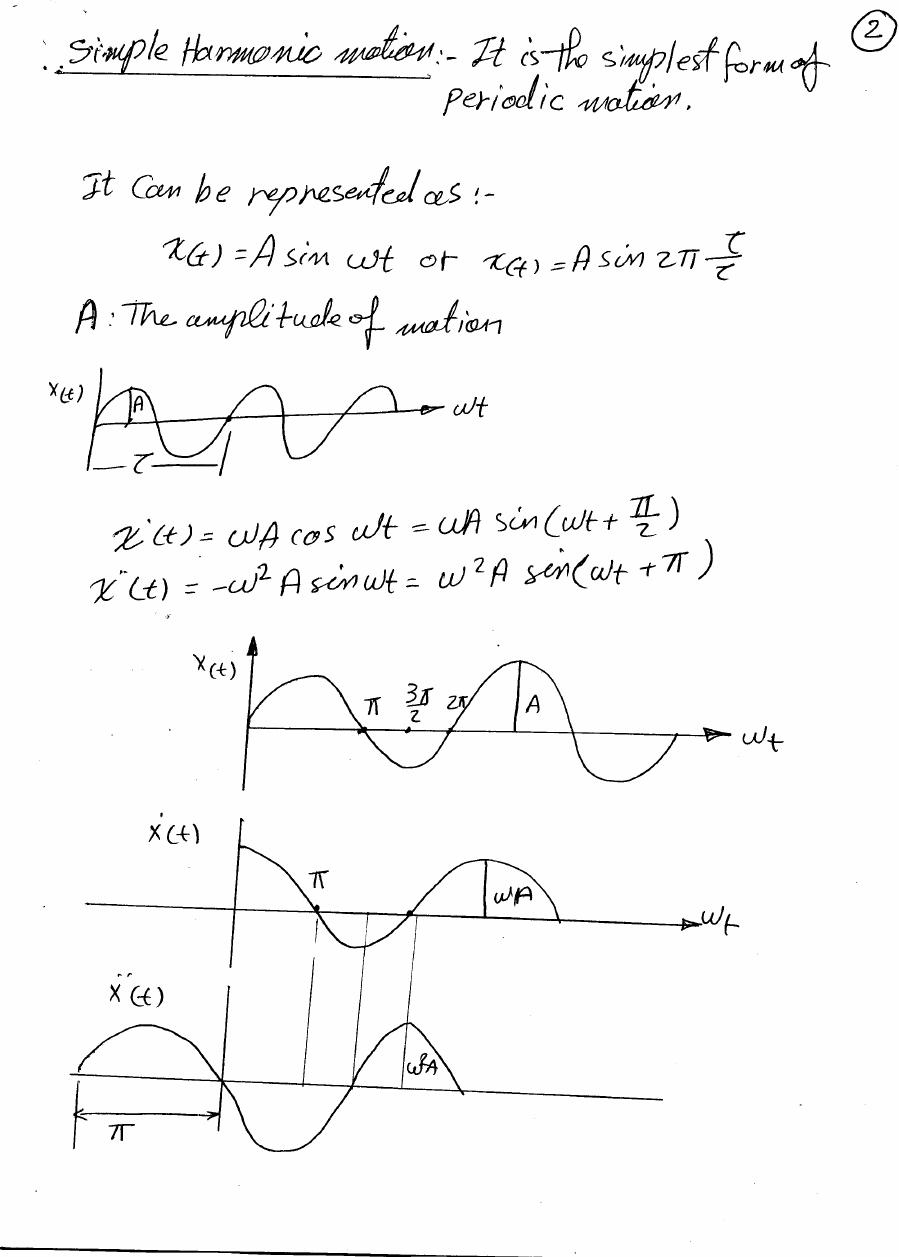 2
Simple Harmonic motion:- It is the simplest form of
periodic motion.
It Can be represented as :-
x(t) = A sin ωt or x(t) = A sin 2π t/τ
A : The amplitude of motion
x(t)
A
ωt
τ
ẋ(t) = ωA cos ωt = ωA sin(ωt + π/2)
ẍ(t) = -ω² A sin ωt = ω²A sin(ωt + π)
x(t)
π 3π/2 2π A
ωt
ẋ(t)
π
ωA
ωt
ẍ(t)
ω²A
π